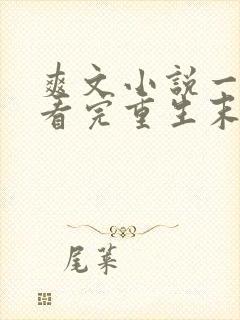 爽文小说一
看完重生末
尾葉